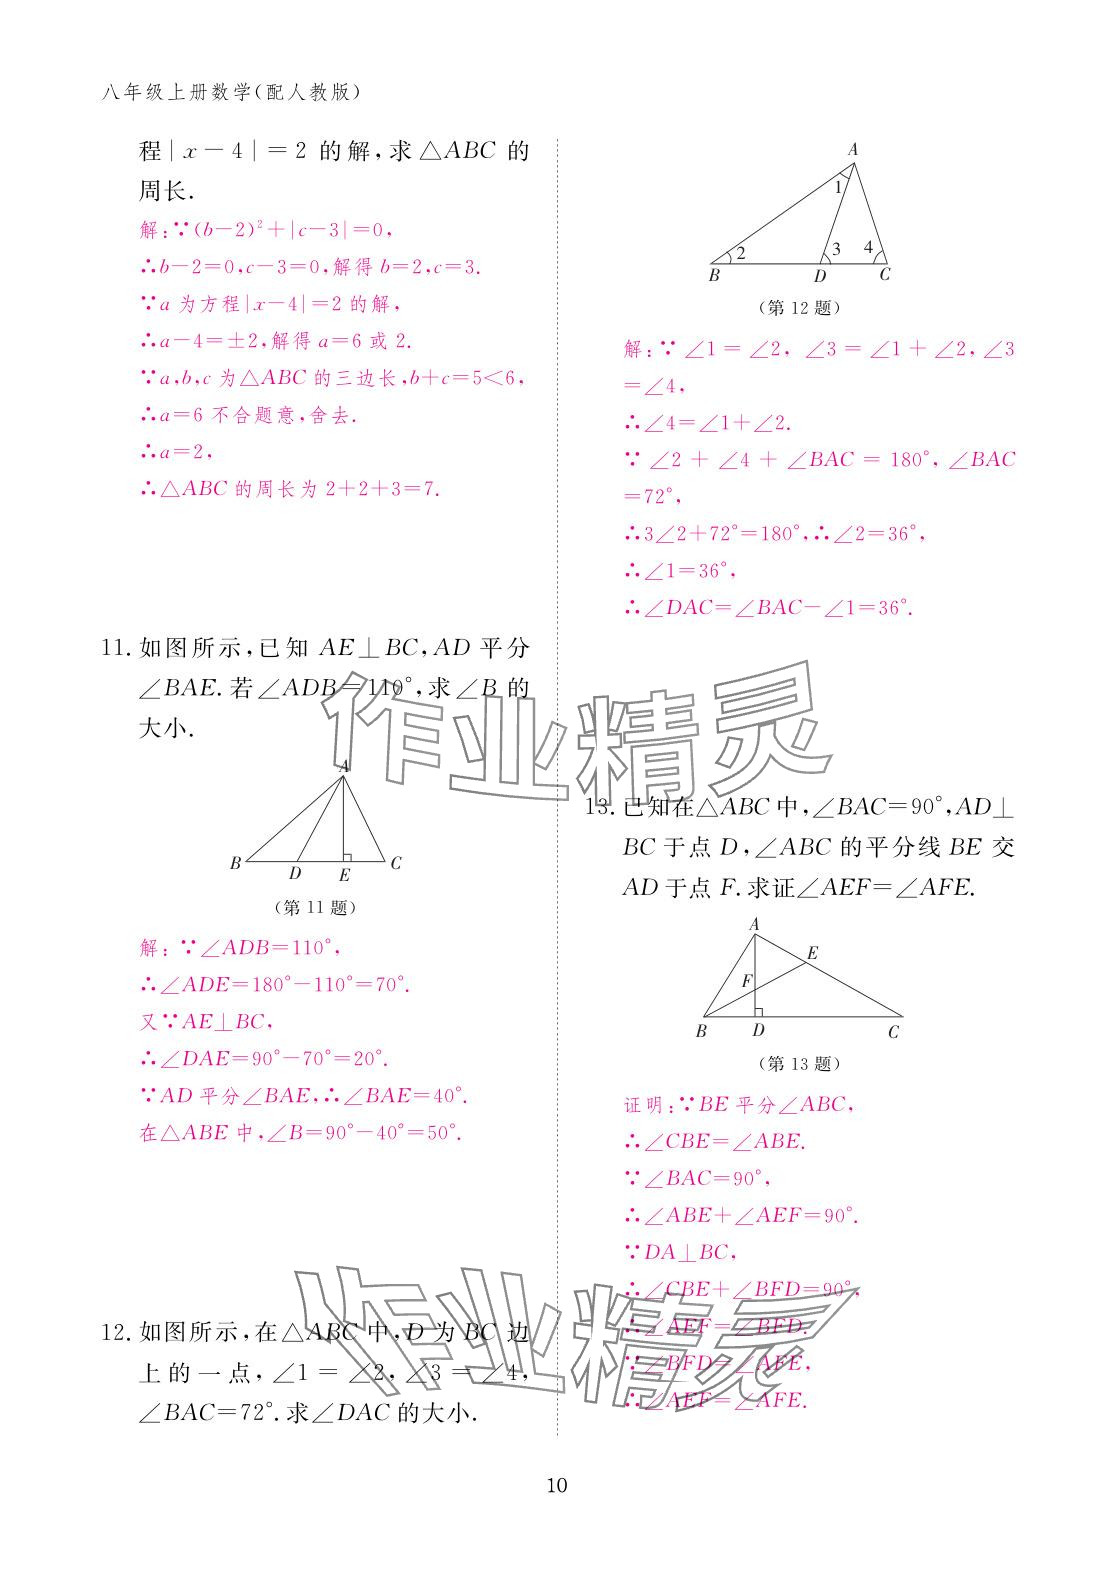 八年级上册数学(配人教版)
程|x－4|＝2 的解,求△ABC 的
周长.
解:∵(b－2)²＋|c－3|＝0,
∴b－2＝0,c－3＝0,解得 b＝2,c＝3.
∵a 为方程|x－4|＝2 的解,
∴a－4＝±2,解得 a＝6 或 2.
∵a,b,c 为△ABC 的三边长,b＋c＝5＜6,
∴a＝6 不合题意,舍去.
∴a＝2,
∴△ABC 的周长为 2＋2＋3＝7.
11. 如图所示,已知 AE⊥BC,AD 平分
∠BAE.若∠ADB＝110°,求∠B 的
大小.
A
B
D
E
C
(第 11 题)
解:∵∠ADB＝110°,
∴∠ADE＝180°－110°＝70°.
又∵AE⊥BC,
∴∠DAE＝90°－70°＝20°.
∵AD 平分∠BAE,∴∠BAE＝40°.
在△ABE 中,∠B＝90°－40°＝50°.
12. 如图所示,在△ABC 中,D 为 BC 边
上的一点,∠1＝∠2,∠3＝∠4,
∠BAC＝72°.求∠DAC 的大小.
A
1
2
3
4
B
D
C
(第 12 题)
解:∵∠1＝∠2,∠3＝∠1＋∠2,∠3
＝∠4,
∴∠4＝∠1＋∠2.
∵∠2＋∠4＋∠BAC＝180°,∠BAC
＝72°,
∴3∠2＋72°＝180°,∴∠2＝36°,
∴∠1＝36°,
∴∠DAC＝∠BAC－∠1＝36°.
13. 已知在△ABC 中,∠BAC＝90°,AD⊥
BC 于点 D,∠ABC 的平分线 BE 交
AD 于点 F.求证∠AEF＝∠AFE.
A
E
F
B
D
C
(第 13 题)
证明:∵BE 平分∠ABC,
∴∠CBE＝∠ABE.
∵∠BAC＝90°,
∴∠ABE＋∠AEF＝90°.
∵DA⊥BC,
∴∠CBE＋∠BFD＝90°,
∴∠AEF＝∠BFD.
∵∠BFD＝∠AFE,
∴∠AEF＝∠AFE.
作业精灵
作业精灵
10